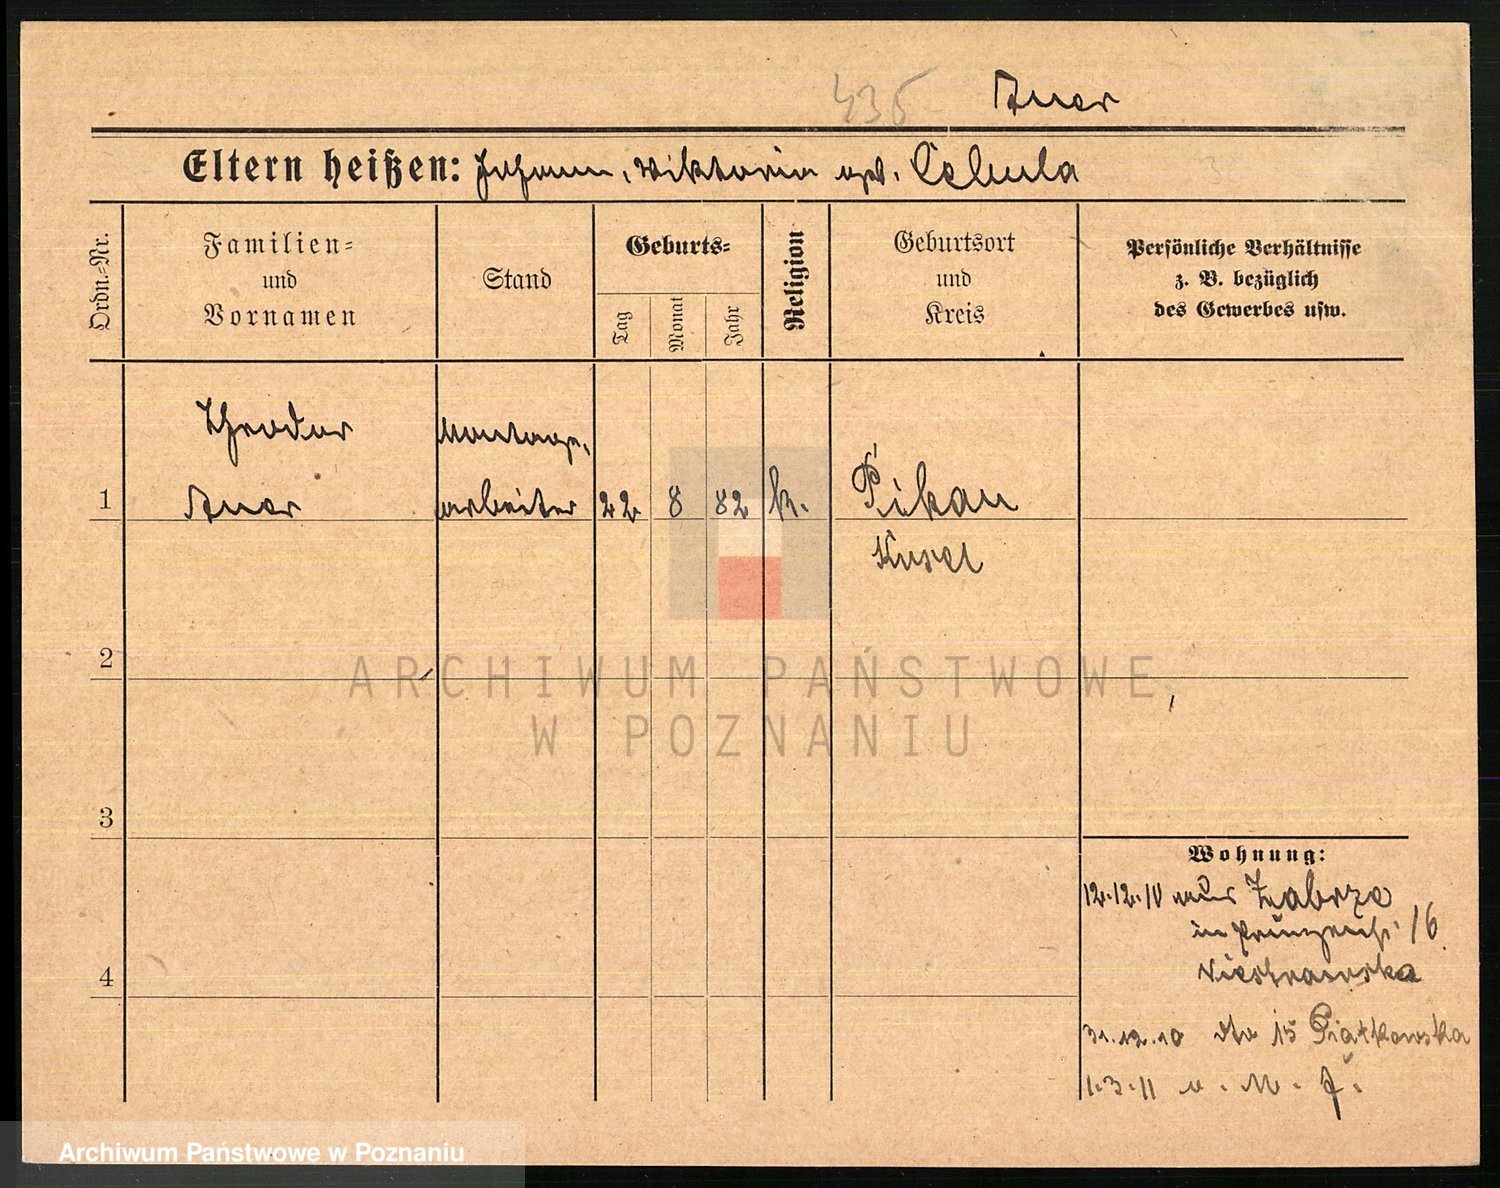 435 Auer
Eltern heißen: Johann, Viktoria geb. Cebula
Ordn.-Nr.
Familien- und Vornamen
Stand
Geburts-
Tag
Monat
Jahr
Religion
Geburtsort und Kreis
Persönliche Verhältnisse
z. B. bezüglich
des Gewerbes usw.
Theodor
Montage
1 Auer arbeiter 22 8 82 k. Pikau
2
3
4
Wohnung:
12.12.10 aus Zabrze
in 16
31.12.10 dto 15 Piątkowska
1.3.11 n. M.
ARCHIWUM PAŃSTWOWE
W POZNANIU
Archiwum Państwowe w Poznaniu